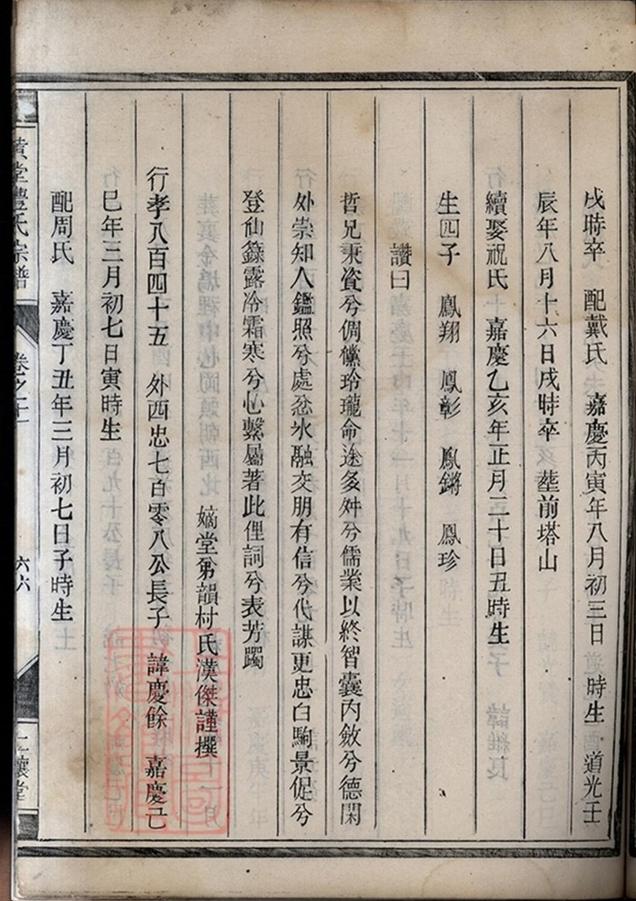 戌時卒　配戴氏　嘉慶丙寅年八月初三日　時生　道光壬
辰年八月十六日戌時卒　塟前塔山
續娶祝氏　嘉慶乙亥年正月二十日丑時生
生四子　鳳翔　鳳彰　鳳鏘　鳳珍
讚曰
哲兄秉資兮倜儻玲瓏命途多舛兮儒業以終智囊內斂兮德閑
外崇知人鑑照兮處忿冰融交朋有信兮代謀更忠白駒景促兮
登仙籙露冷霜寒兮心繫屬著此俚詞兮表芳躅
嫡堂弟韻村氏漢傑謹撰
行孝八百四十五　外西忠七百零八公長子　諱慶餘　嘉慶己
巳年三月初七日寅時生
配周氏　嘉慶丁丑年三月初七日子時生
黃堂豐氏宗譜　卷之二　六六